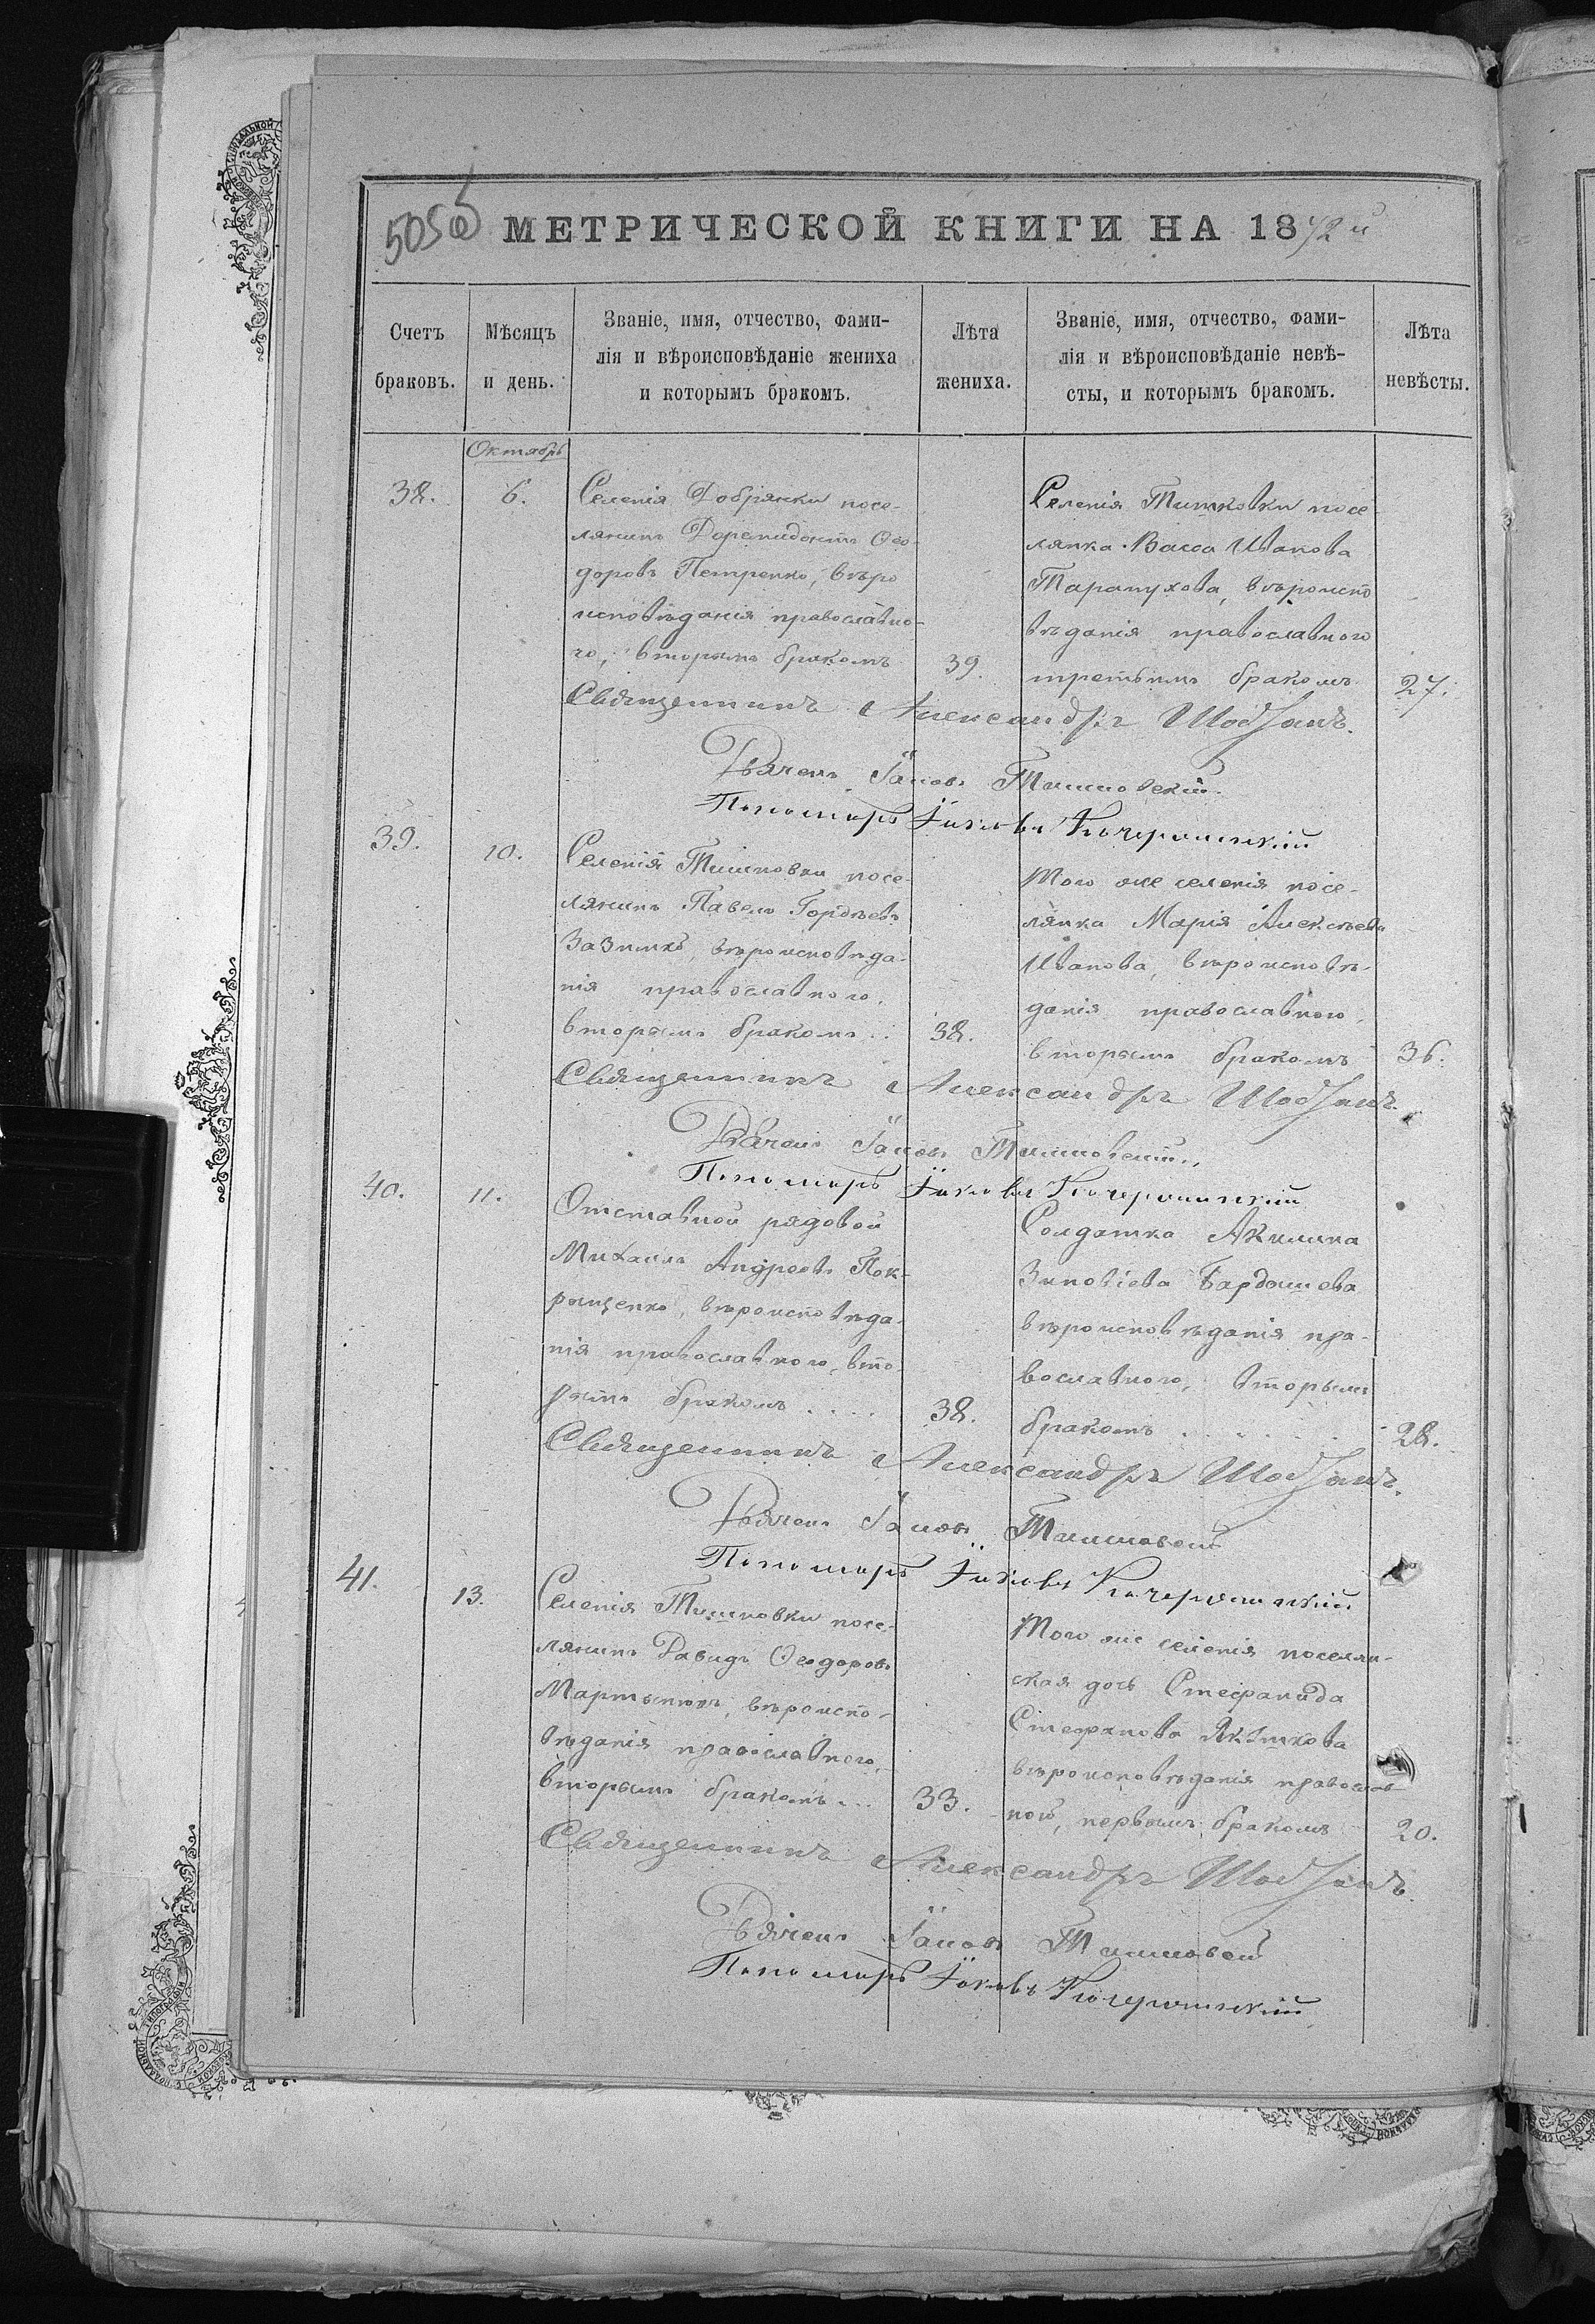 505об
МЕТРИЧЕСКОЙ КНИГИ НА 1872й
Счетъ
браковъ.
Мѣсяцъ
и день.
Званіе, имя, отчество, фами-
лія и вѣроисповѣданіе жениха
и которымъ бракомъ.
Лѣта
жениха.
Званіе, имя, отчество, фами-
лія и вѣроисповѣданіе невѣ-
сты, и которымъ бракомъ.
Лѣта
невѣсты.
Октябрь
38.
6.
Селенія Добрянки посе-
лянинъ Доримидонтъ Ѳео-
доровъ Петренко, вѣро
исповѣданія православно-
го, вторымъ бракомъ
39.
Селенія Тишковки посе
лянка Васса Иванова
Тарапухова, вѣроиспо
вѣданія православного
третьимъ бракомъ
27.
Священникъ Александръ
Дьячекъ Іаковъ
Пономарь Іаковъ
39.
10.
Селенія Тишковки посе-
лянинъ Павелъ Гордѣевъ
вѣроисповѣда-
нія православного,
вторымъ бракомъ..
38.
Того же селенія посе-
лянка Марія Алексѣева
Иванова, вѣроисповѣ-
данія православного,
вторымъ бракомъ
36.
Священникъ Александръ
Дьячекъ Іаковъ
Пономарь Іаковъ
40.
11.
Отставной рядовой
Михаилъ Андреевъ Пок-
рищенко, вѣроисповѣда-
нія православного, вто
рымъ бракомъ ....
38.
Солдатка Акилина
Зиновіева Бардышева
вѣроисповѣданія пра-
вославного, вторымъ
бракомъ ......
28.
Священникъ Александръ
Дьячекъ Іаковъ
Пономарь Іаковъ
41.
13.
Селенія Тишковки посе-
лянинъ Давидъ Ѳеодоровъ
Мартынюкъ, вѣроиспо-
вѣданія православного,
вторымъ бракомъ...
33.
Того же селенія поселян-
ская дочь Стефанида
Стефанова Якимкова
вѣроисповѣданія православ
ного, первымъ бракомъ
20.
Священникъ Александръ
Дьячекъ Іаковъ
Пономарь Іаковъ